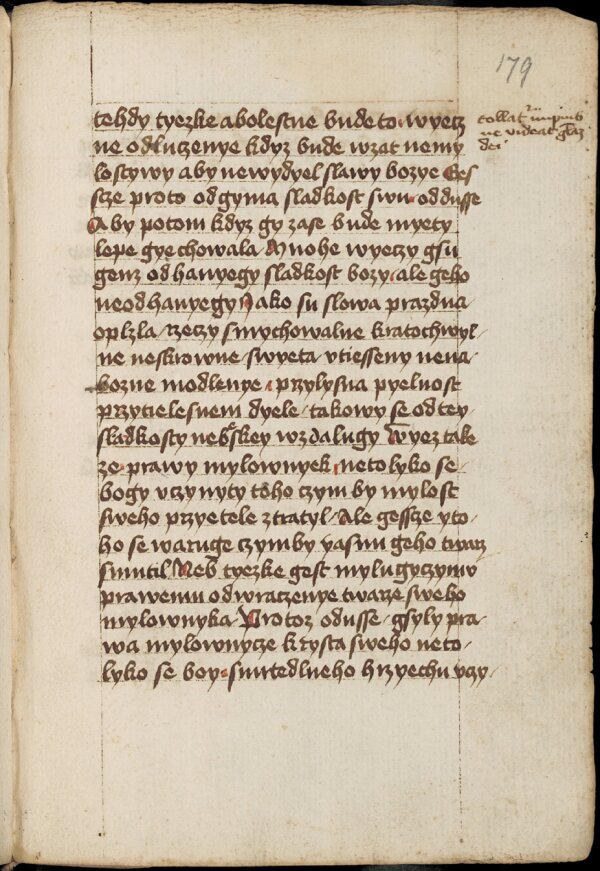 179
tollat~ impius
ne videat gl~az
dei
tehdy tyezke abolestne bude to wyecz
ne odluczenye kdyz bude wzat nemy
lostywy aby newydyel slawy bozye Ges
scze proto odgyma sladkost swu od dusse
Aby potom kdyz gy zase bude myety
lepe gyechowala Mnohe wyeczy gsu
genz odhanyegy sladkost bozy ale geho
neodhanyegy Jako su slowa prazdna
oplzla rzeczy smychowalne kratochwyl
ne neskrowne swyeta vtiesseny nena
bozne modlenye przylysna pyelnost
przy tielesnem dyele takowy se od tey
sladkosty neb~skey wzdalugy Wyez take
ze prawy mylownyek netolyko se
bogy vczynyty toho czym by mylost
sweho przyetele ztratyl Ale gessze yto
ho se waruge czymby yasnu geho twarz
smutil Neb tyezke gest mylugyczymu
prawemu odwraczenye twarze sweho
mylownyka Protoz o dusse gsyly pra
wa mylownycze krysta sweho neto
lyko se boy smrtedlneho hrzyechu vczy